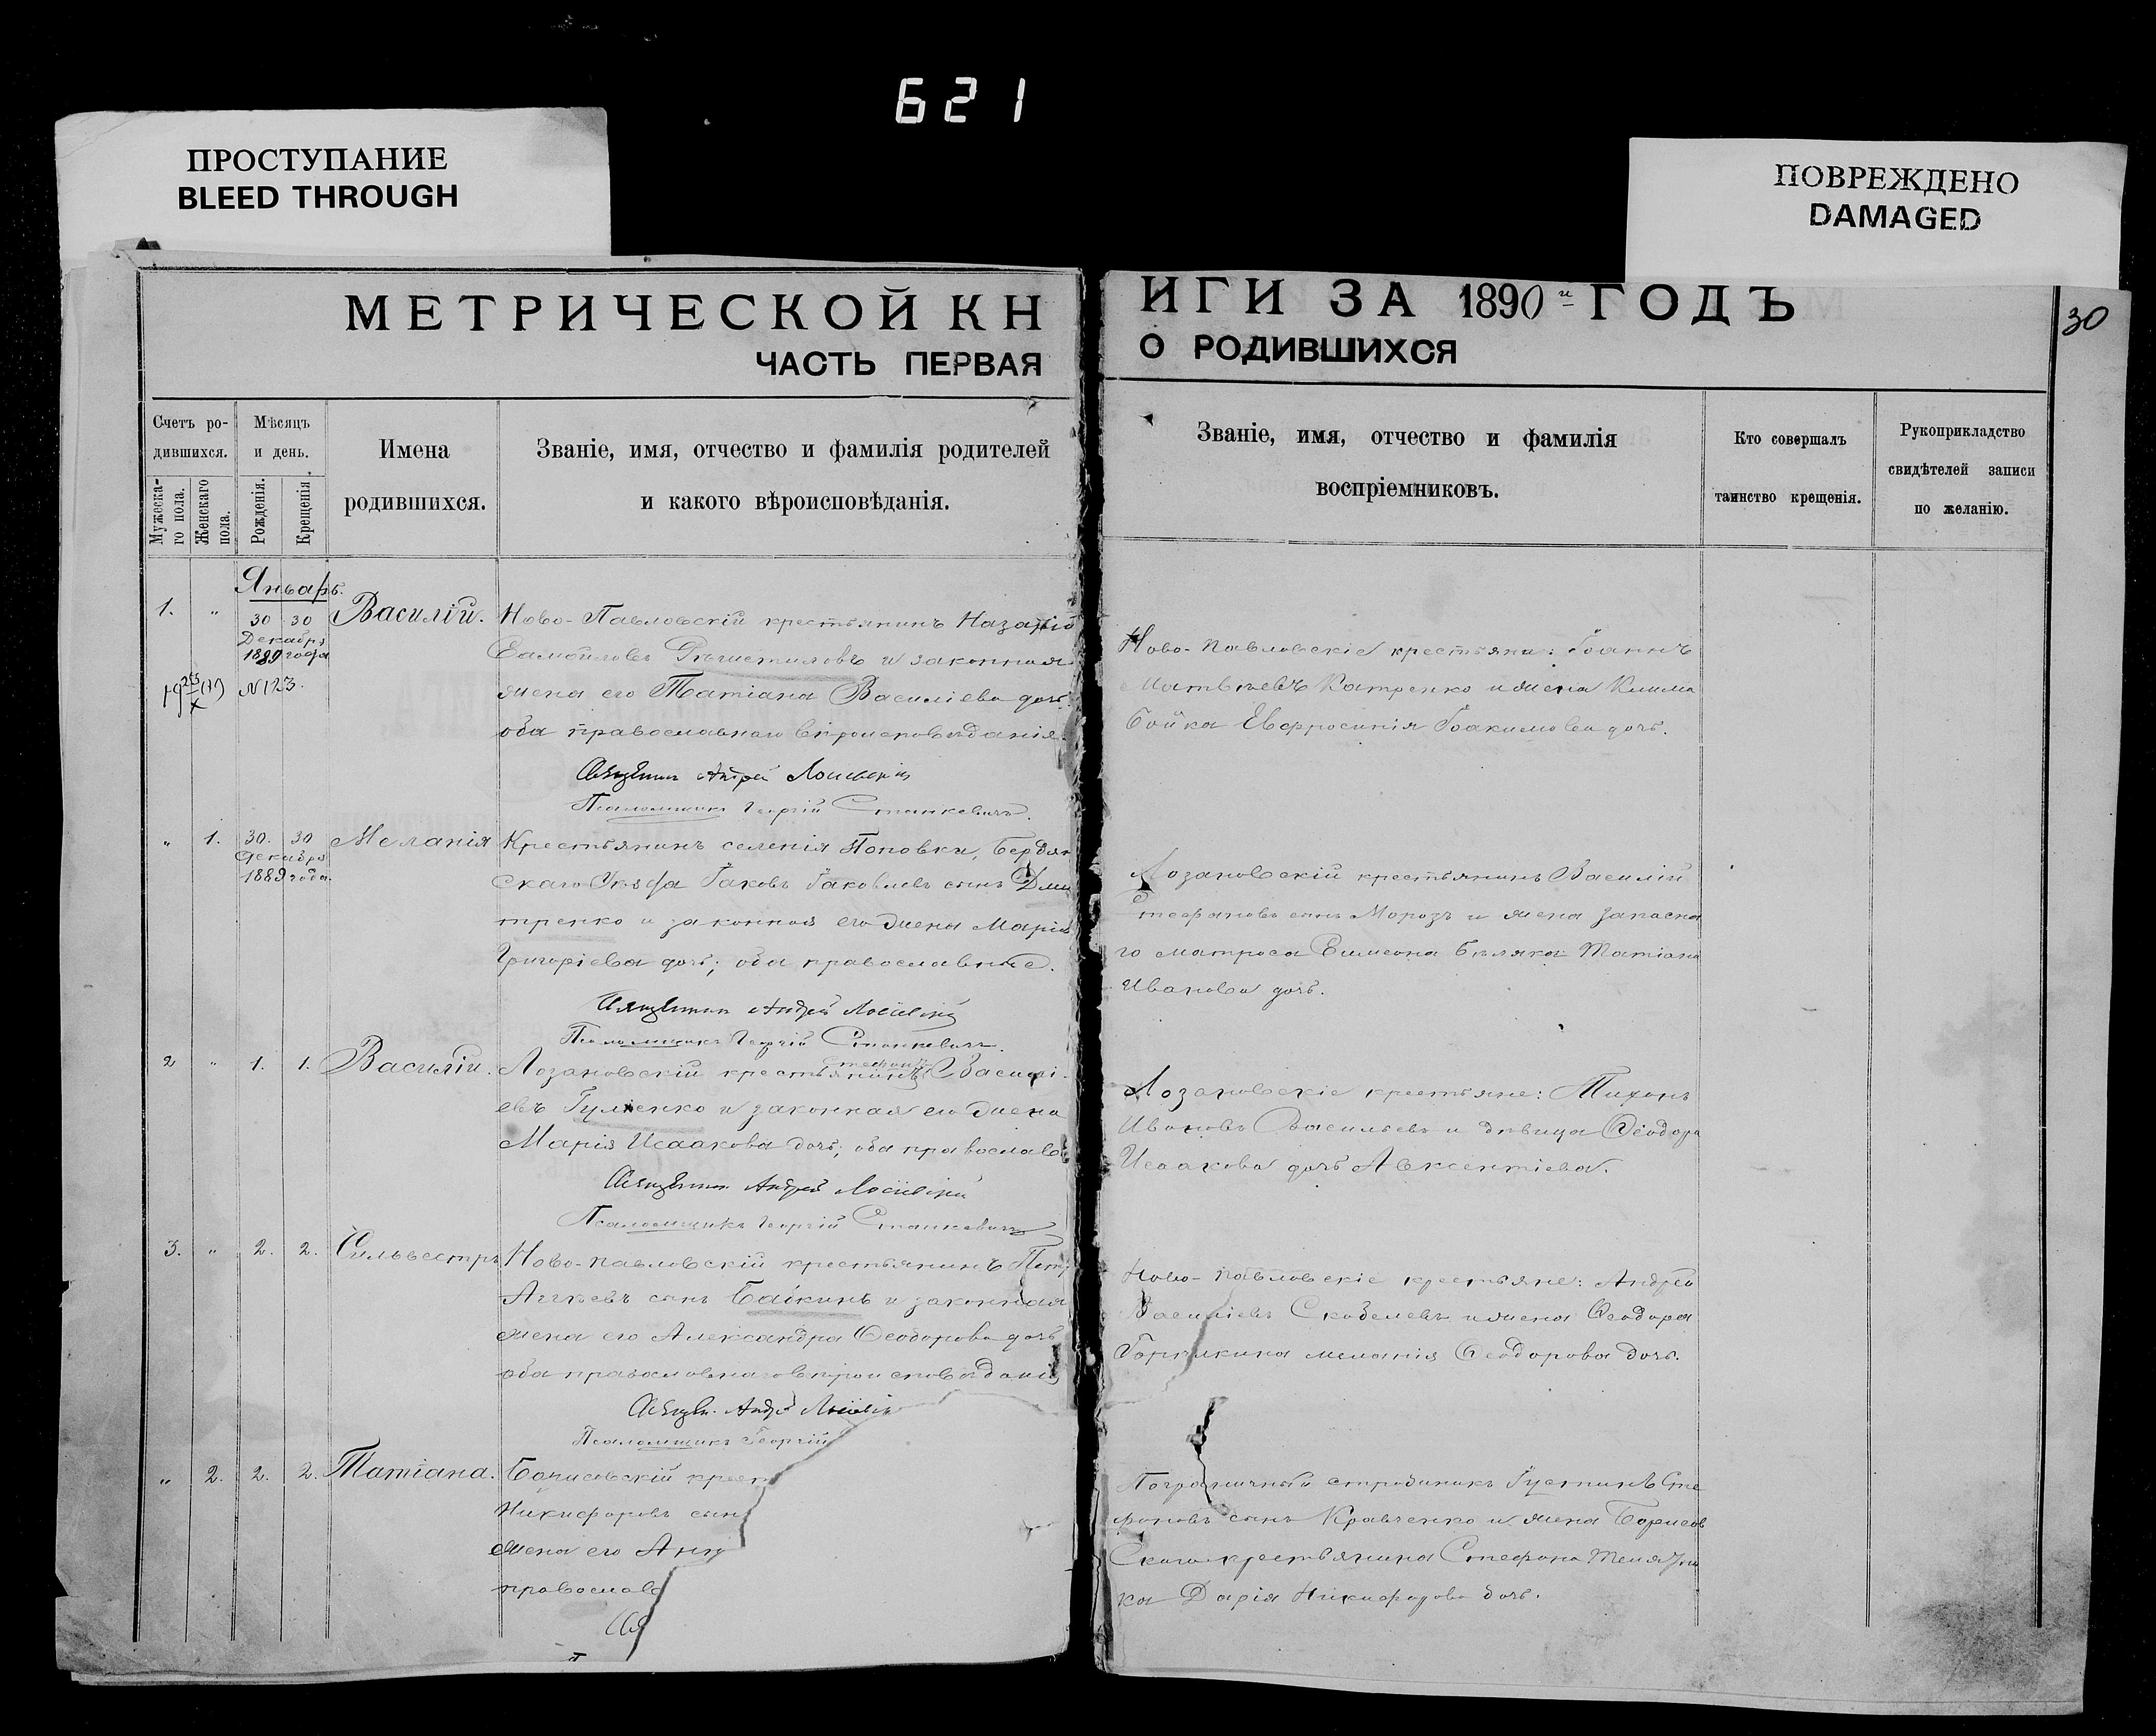 621
ПРОСТУПАНИЕ
BLEED THROUGH
ПОВРЕЖДЕНО
DAMAGED
МЕТРИЧЕСКОЙ КН
ЧАСТЬ ПЕРВАЯ
Счетъ ро-
дившихся.
Мужеска-
го пола.
Женскаго
пола.
Мѣсяцъ
и день.
Рожденія.
Крещенія.
Имена
родившихся.
Званіе, имя, отчество и фамилія родителей
и какого вѣроисповѣданія.
Январь.
1. " 30 30 Василій. Ново-Павловскій крестьянинъ Назарій
Декабря
1889 года
Самойловъ и законная
№123.
жена его Татіана Василіева дочь.
оба православнаго вѣроисповѣданія.
Священникъ Андрей
Псаломщикъ Георгій Станкевичъ.
" 1. 30. 30 Меланія Крестьянинъ селенія Поповки, Бердян
Декабря
1889 года.
скаго уѣзда Іаковъ Іаковлевъ сынъ Дми
тренко и законная его жена Марія
Григоріева дочь; оба православные.
Священникъ Андрей
Псаломщикъ Георгій Станкевичъ.
2 " 1. 1. Василій. Лозановскій крестьянинъ Стефанъ Васил
евъ и законная его жена
Марія Исаакова дочь; оба православ
Священникъ Андрей
Псаломщикъ Георгій Станкевичъ
3. " 2. 2. Сильвестръ Ново-павловскій крестьянинъ Петр
сынъ Байкинъ и законная
жена его Александра Ѳеодорова дочь
оба православнаго вѣроисповѣданія
Священ. Андрей
Псаломщикъ Георгій
" 2. 2. 2. Татіана. Борисовскій крест
Никифоровъ сынъ
жена его Анн
православ
ИГИ ЗА 1890й ГОДЪ
О РОДИВШИХСЯ
30
Званіе, имя, отчество и фамилія
воспріемниковъ.
Кто совершалъ
таинство крещенія.
Рукоприкладство
свидѣтелей записи
по желанію.
Ново-павловскіе крестьяне: Іоаннъ
Матвѣевъ Катренко и жена Клима
Бойка Евфросинія Іоакимова дочь.
Лозановскій крестьянинъ Василій
Стефановъ сынъ Морозъ и жена запасна
го матроса Симеона Бѣляка Татіана
Иванова дочь.
Лозановскіе крестьяне: Тихонъ
Ивановъ Васильевъ и дѣвица Ѳеодора
Исаакова дочь Авксентіева.
Ново-павловскіе крестьяне: Андрей
Василіевъ Скобелевъ и жена Ѳеодора
Меланія Ѳеодорова дочь.
Пограничный Іустинъ Сте
фановъ сынъ Кравченко и жена Борисов
скаго крестьянина Стефана
ка Дарія Никифорова дочь.